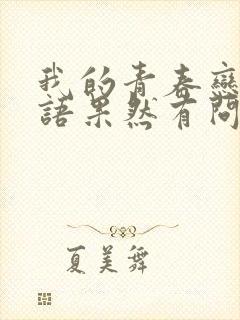 我的青春戀
語果然有問
夏美舞